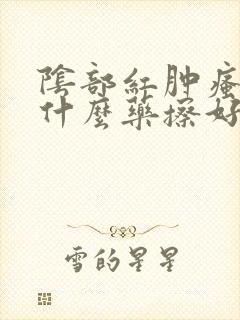 陰部紅肿瘙
什麼藥擦好
雪的星星